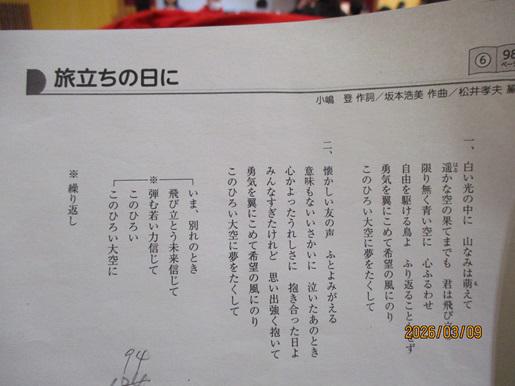 旅立ちの日に
⑥ 98
ページ
小嶋 登 作詞/坂本浩美 作曲/松井孝夫 編
一、白い光の中に 山なみは萌えて
遥かな空の果てまでも 君は飛び立
限り無く青い空に 心ふるわせ
自由を駆ける鳥よ ふり返ることもせず
勇気を翼にこめて希望の風にのり
このひろい大空に夢をたくして
二、懐かしい友の声 ふとよみがえる
意味もないいさかいに 泣いたあのとき
心かよったうれしさに 抱き合った日よ
みんなすぎたけれど 思い出強く抱いて
勇気を翼にこめて希望の風にのり
このひろい大空に夢をたくして
いま、別れのとき
飛び立とう未来信じて
※弾む若い力信じて
このひろい
このひろい大空に
※繰り返し
94
2026/03/09